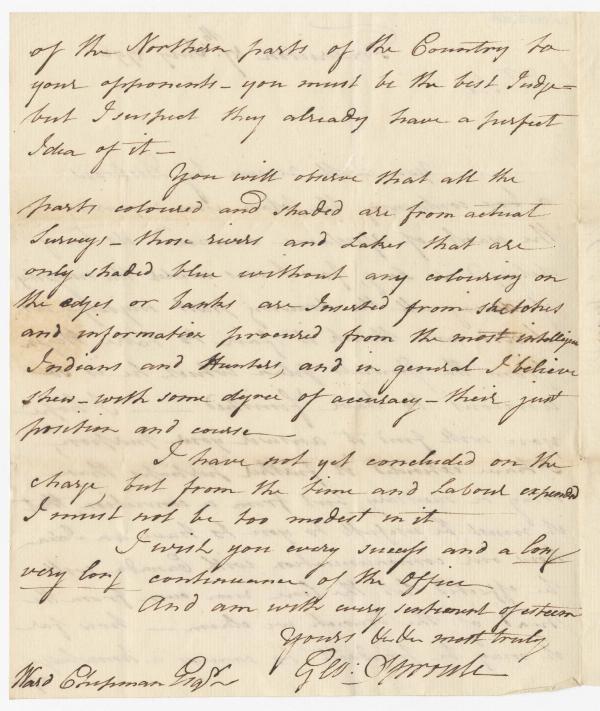 of the Northern parts of the Country to
your opponents - you must be the best Judge -
but I suspect they already have a perfect
Idea of it -
You will observe that all the
parts coloured and shaded are from actual
Surveys - those rivers and Lakes that are
only shaded blue without any colouring on
the edges or banks are Inserted from sketches
and information procured from the most intelligen
Indians and Hunters, and in general I believe
shew - with some degree of accuracy - their just
position and course -
I have not yet concluded on the
charge, but from the time and Labour expended
I must not be too modest in it
I wish you every success and a long
very long continuance of the Office
And am with every sentiment of esteem
Yours &c &c most truly
Geo: Sproule
Ward Chipman Esqr